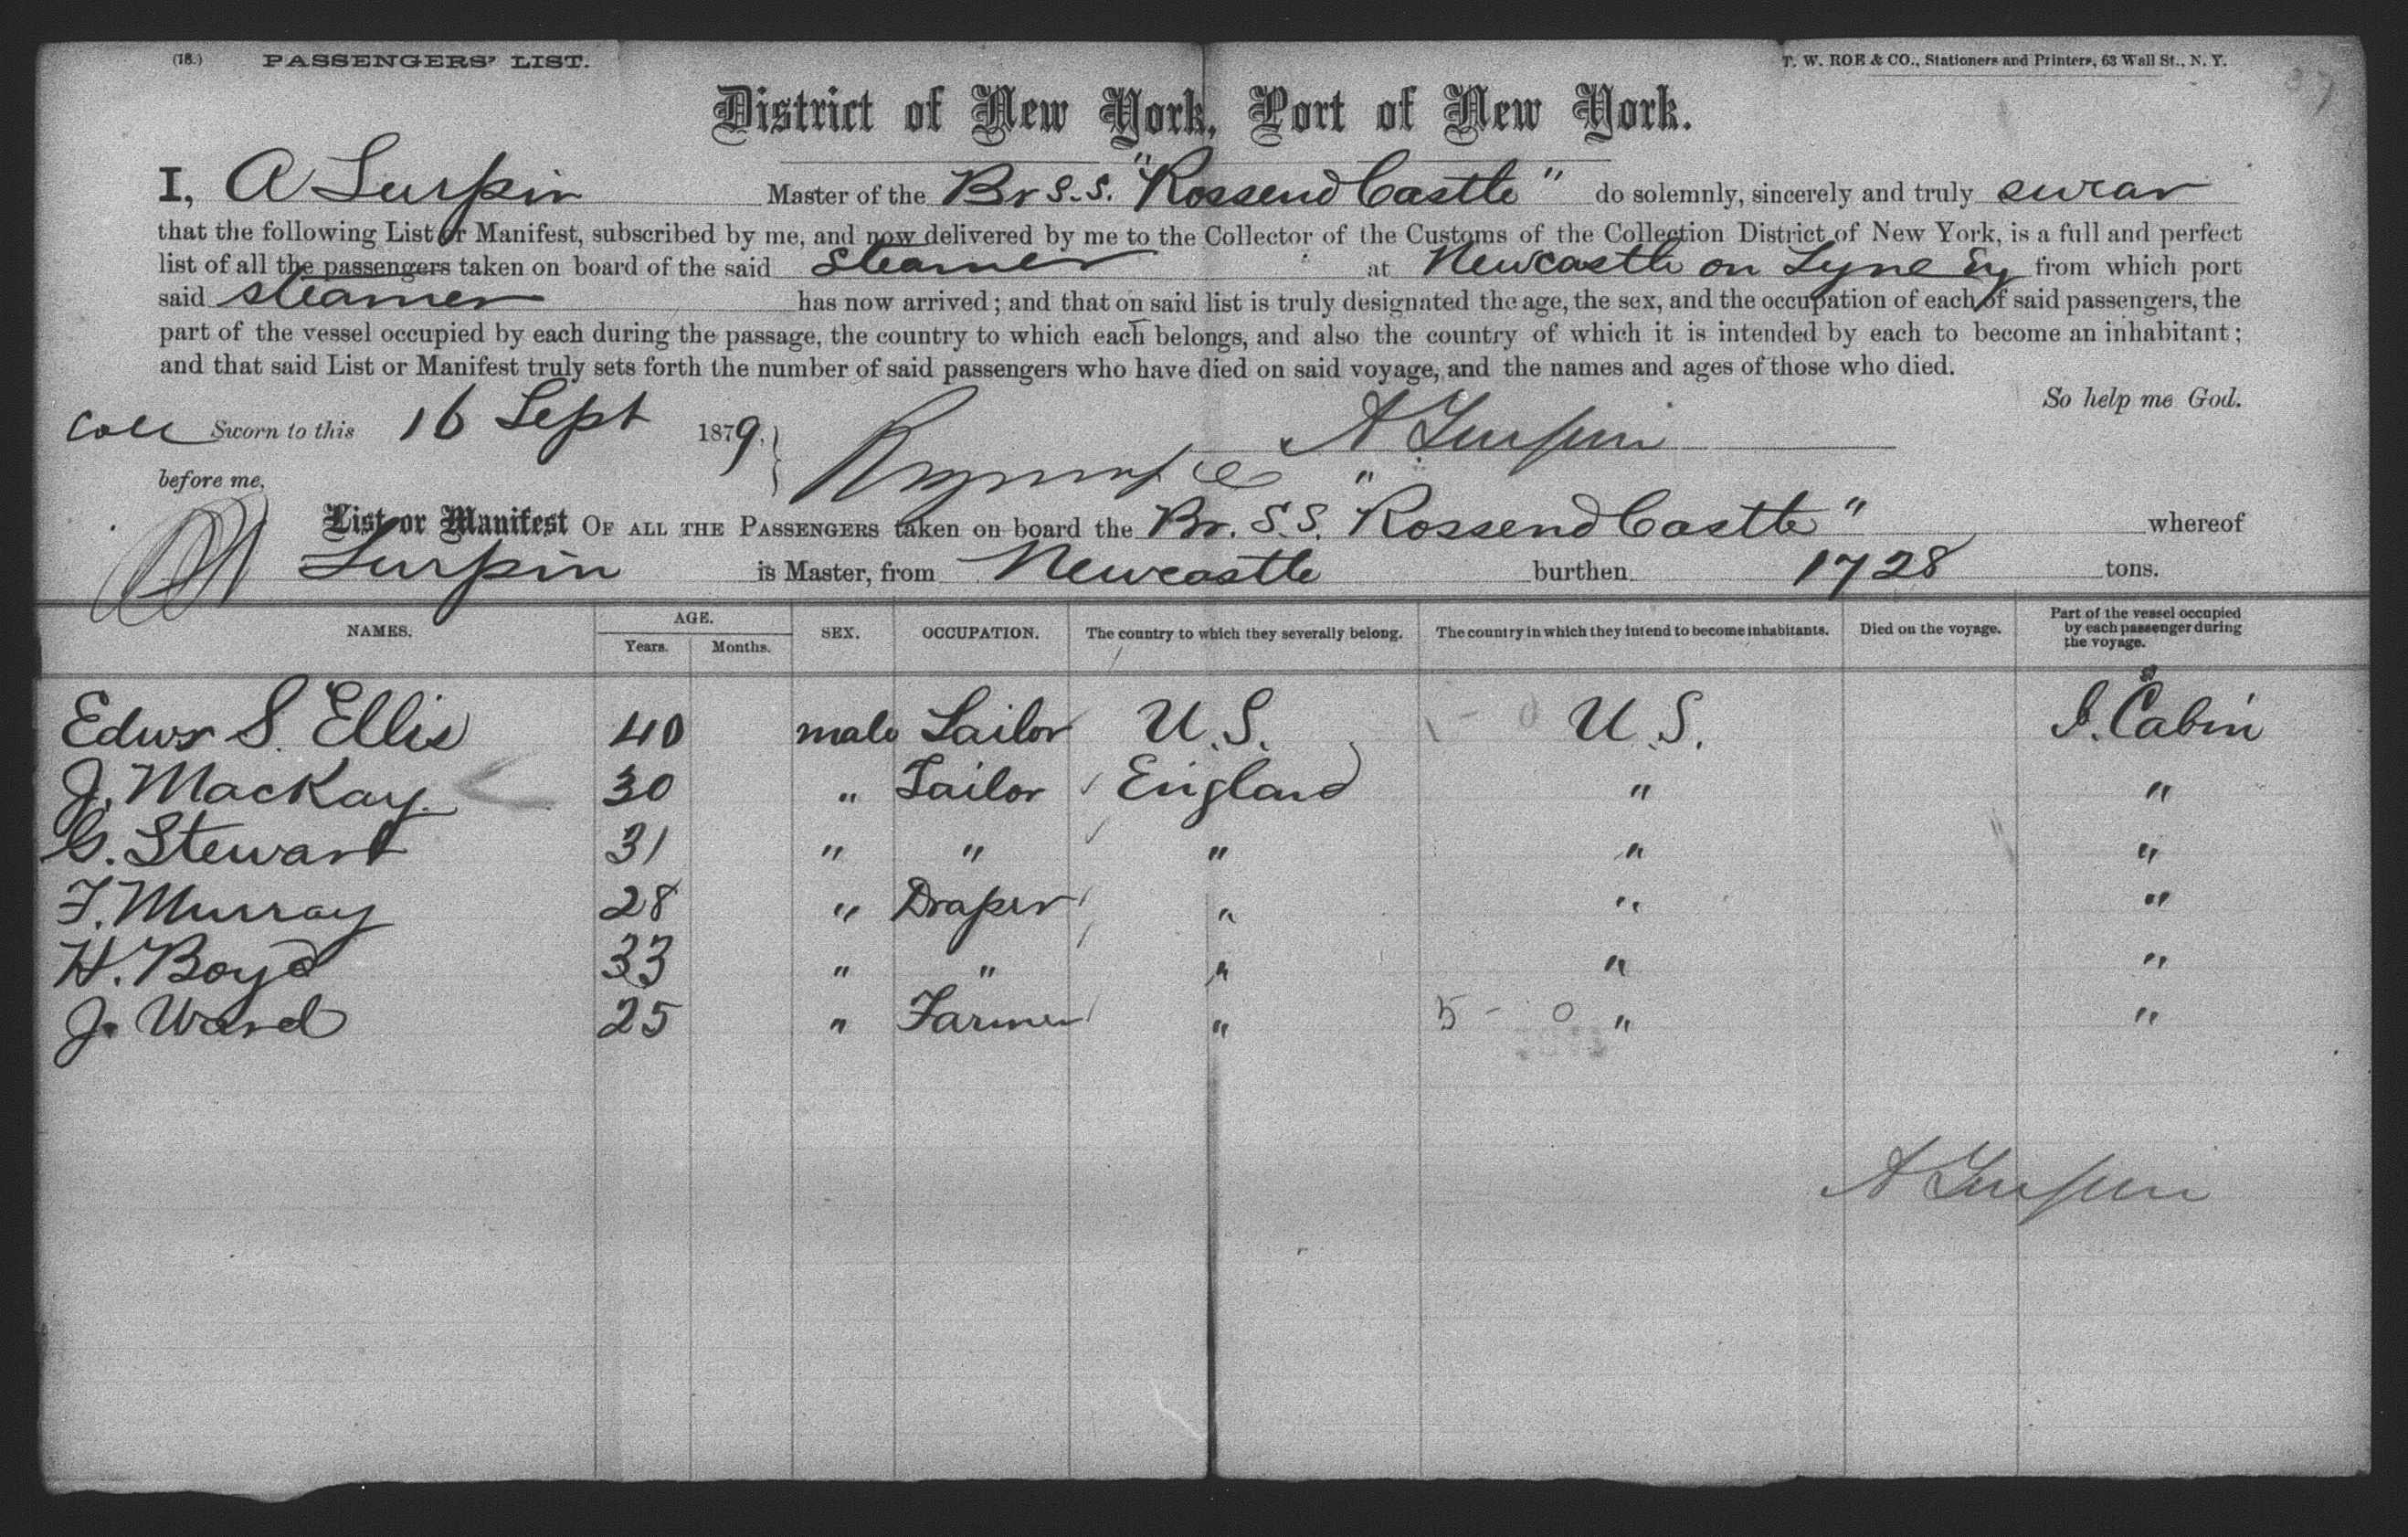 (18.) PASSENGERS' LIST. T. W. ROE & CO., Stationers and Printers, 63 Wall St., N. Y.
District of New York, Port of New York.
I, A Turpin Master of the Br S.S. "Rossend Castle" do solemnly, sincerely and truly swear
that the following List or Manifest, subscribed by me, and now delivered by me to the Collector of the Customs of the Collection District of New York, is a full and perfect
list of all the passengers taken on board of the said Steamer at Newcastle on Tyne Eng from which port
said steamer has now arrived; and that on said list is truly designated the age, the sex, and the occupation of each of said passengers, the
part of the vessel occupied by each during the passage, the country to which each belongs, and also the country of which it is intended by each to become an inhabitant;
and that said List or Manifest truly sets forth the number of said passengers who have died on said voyage, and the names and ages of those who died.
So help me God.
Sworn to this 16 Sept 1879. A Turpin
before me,
List or Manifest OF ALL THE PASSENGERS taken on board the Br. S.S. "Rossend Castle" whereof
Turpin is Master, from Newcastle burthen 1728 tons.
NAMES. AGE. Years. Months. SEX. OCCUPATION. The country to which they severally belong. The country in which they intend to become inhabitants. Died on the voyage. Part of the vessel occupied by each passenger during the voyage.
Edwr S. Ellis 40 male Sailor U.S. 1 - 0 U.S. Cabin
J. MacKay 30 " Tailor England " "
G. Stewart 31 " " " " "
F. Murray 28 " Draper " " "
H. Boyd 33 " " " " "
J. Ward 25 " Farmer " 5 - 0 " "
A Turpin